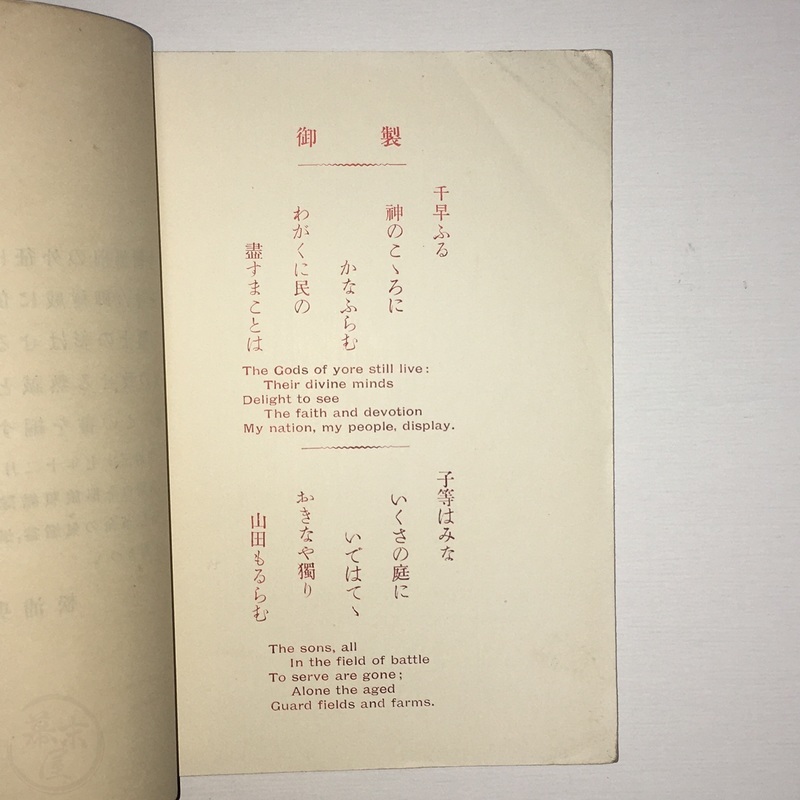 御製
千早ふる
神のこゝろに
かなふらむ
わがくに民の
盡すまことは
The Gods of yore still live:
Their divine minds
Delight to see
The faith and devotion
My nation, my people, display.
子等はみな
いくさの庭に
いではてゝ
おきなや獨り
山田もるらむ
The sons, all
In the field of battle
To serve are gone;
Alone the aged
Guard fields and farms.